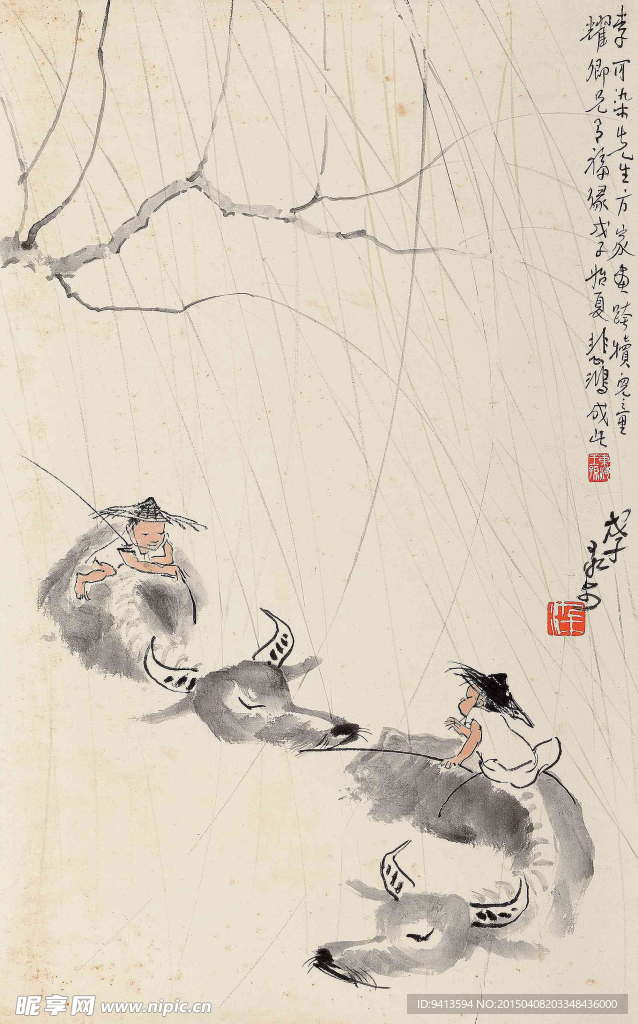 李可染先生方家畫跨犢兒童
耀卿兄有福緣戊子始夏悲鴻成此
戊子
昵享网 www.nipic.cn
ID:9413594 NO:20150408203348436000